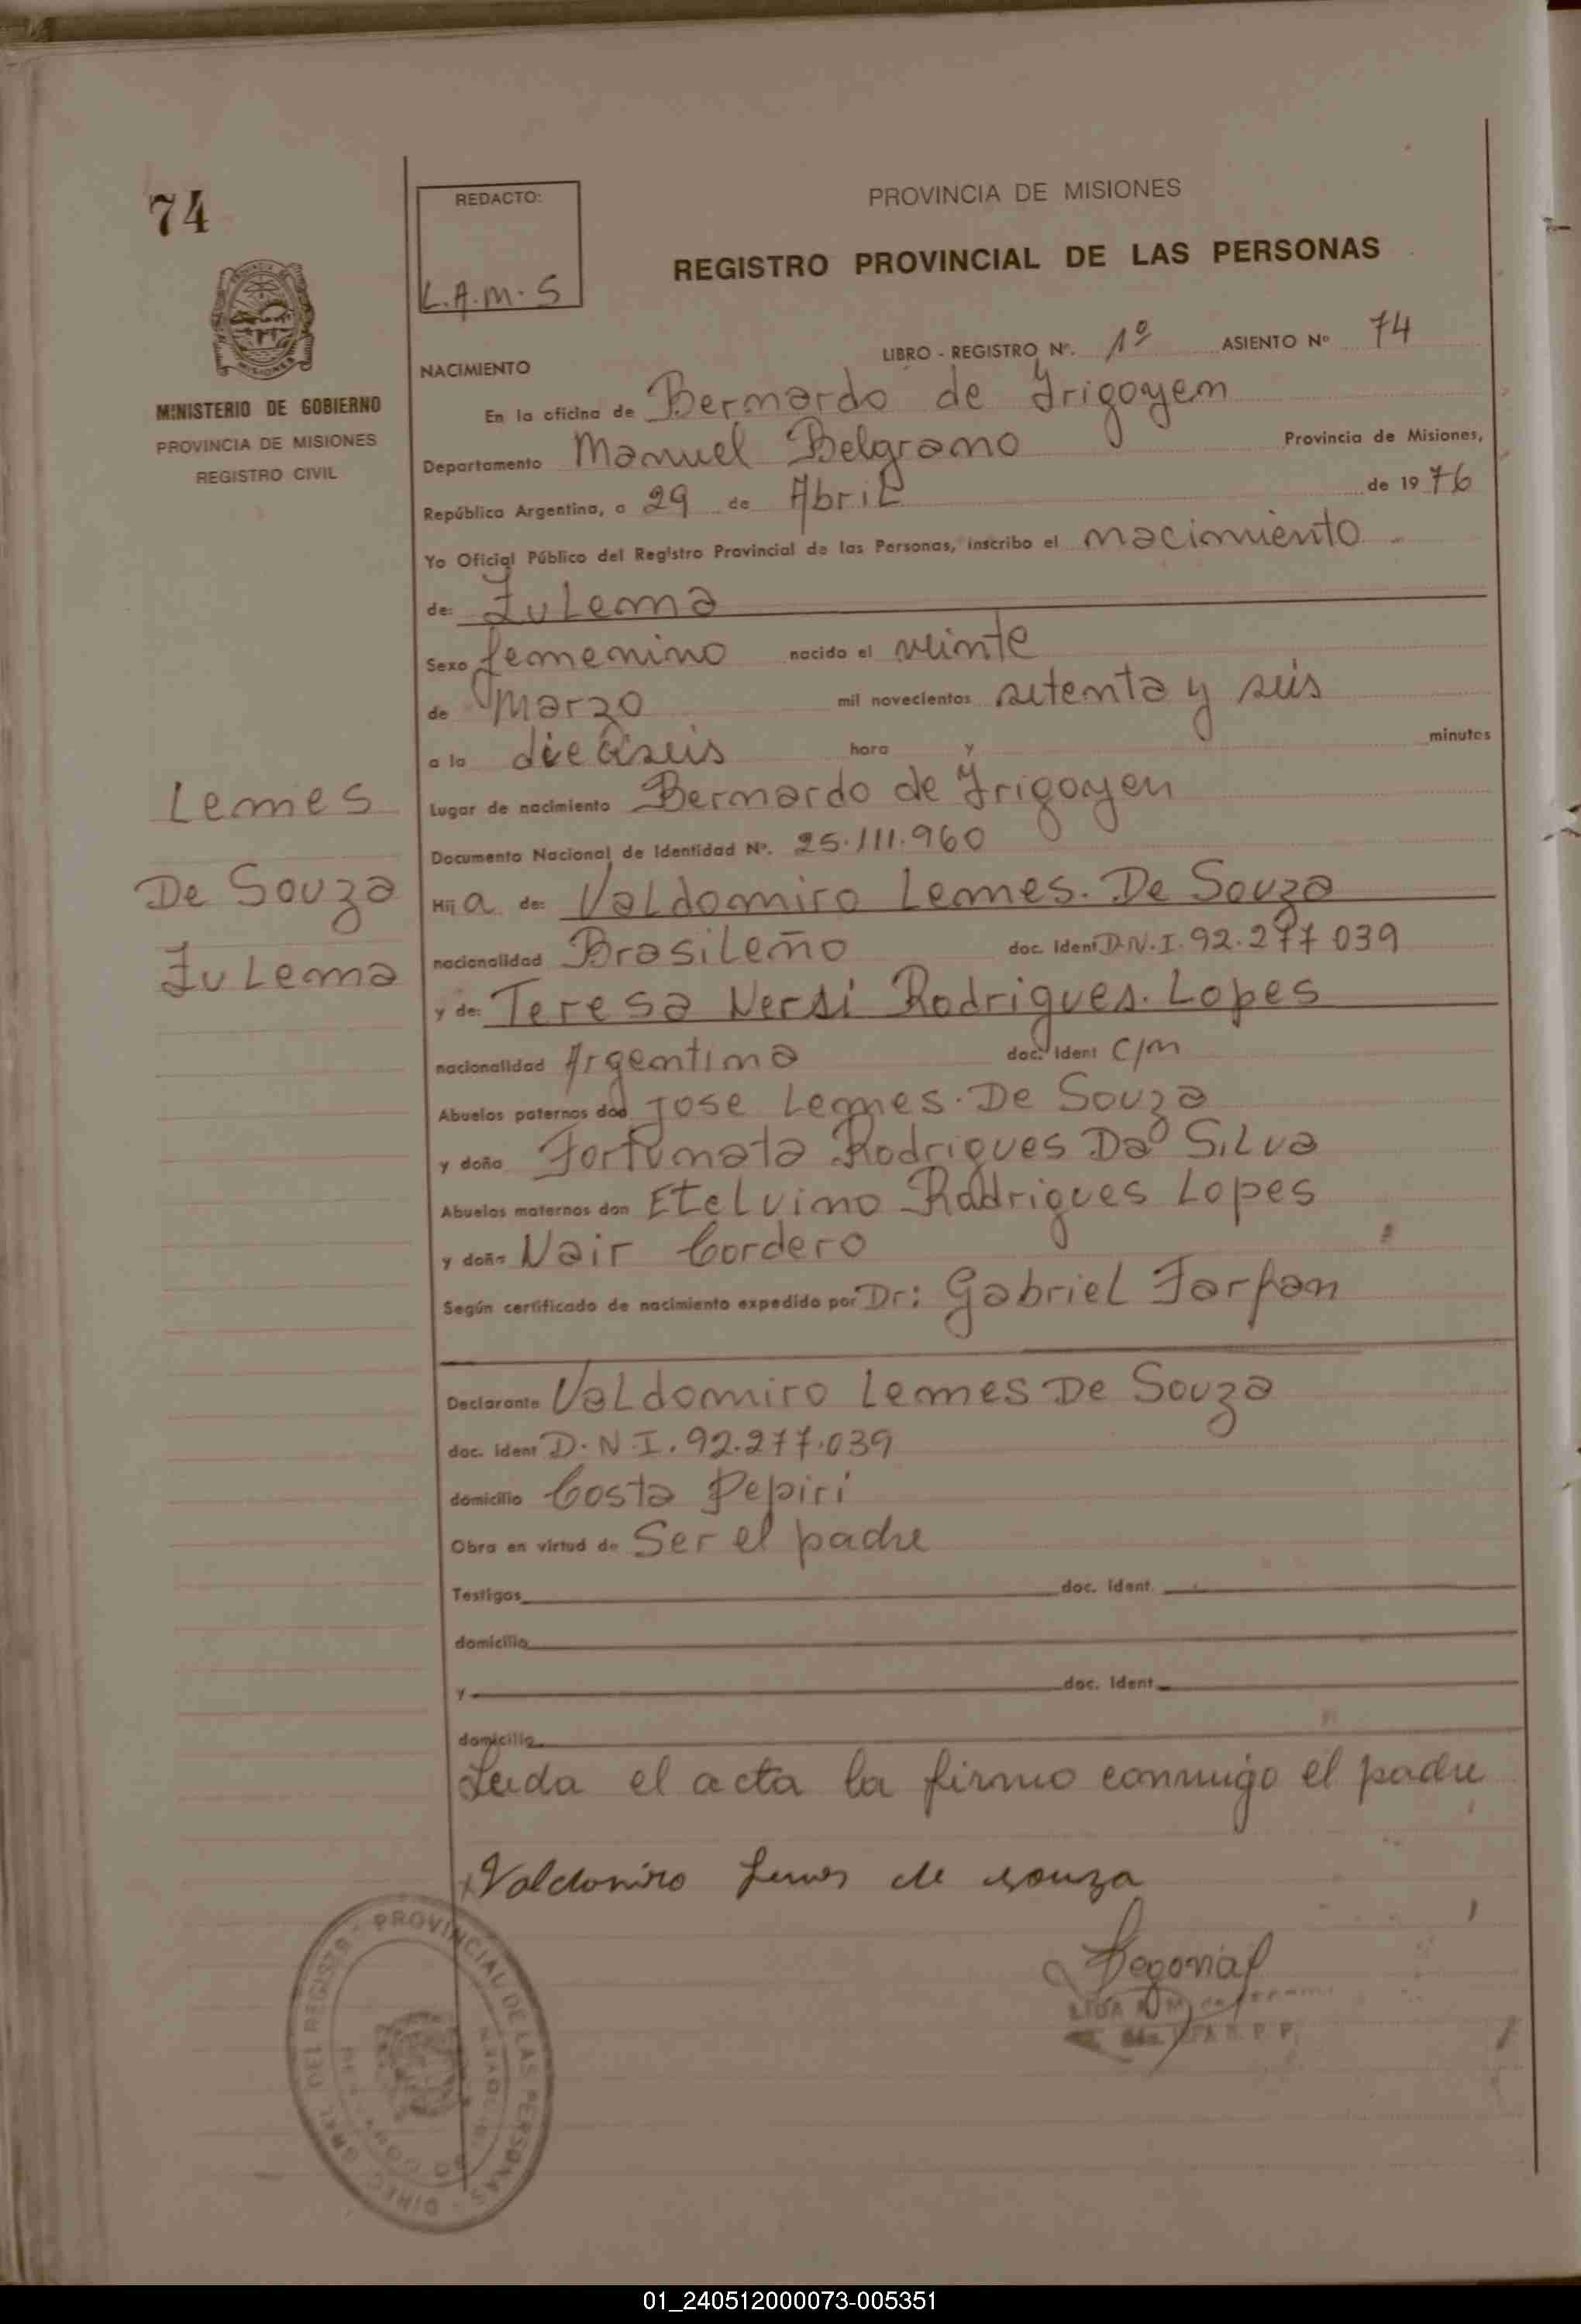 74
REDACTO:
L.A.M.S
PROVINCIA DE MISIONES
REGISTRO PROVINCIAL DE LAS PERSONAS
MINISTERIO DE GOBIERNO
PROVINCIA DE MISIONES
REGISTRO CIVIL
NACIMIENTO
LIBRO - REGISTRO Nº. 1º ASIENTO Nº 74
En la oficina de Bernardo de Irigoyem
Departamento Manuel Belgrano Provincia de Misiones,
República Argentina, a 29 de Abril de 1976
Yo Oficial Público del Registro Provincial de las Personas, inscribo el nacimiento
de: Zulema
Sexo femenino nacido el veinte
de Marzo mil novecientos setenta y seis
a la dieciseis hora y minutos
Lugar de nacimiento Bernardo de Irigoyen
Documento Nacional de Identidad Nº. 25.111.960
Lemes
De Souza
Zulema
Hija de: Valdomiro Lemes. De Souza
nacionalidad Brasileño doc. Ident D.N.I. 92.277 039
y de: Teresa Nersi Rodrigues. Lopes
nacionalidad Argentina doc. Ident C/M
Abuelos paternos don Jose Lemes. De Souza
y doña Fortunata Rodrigues Da Silva
Abuelos maternos don Etelvino Rodrigues Lopes
y doña Nair Cordero
Según certificado de nacimiento expedido por Dr: Gabriel Farfan
Declarante Valdomiro Lemes De Souza
doc. ident D.N.I. 92.277.039
domicilio Costa Pepiri
Obra en virtud de Ser el padre
Testigos doc. ident.
domicilio
y doc. Ident
domicilio
Leida el acta la firmo conmigo el padre
Valdomiro Lemes de souza
DIREC. GRAL. DEL REGISTRO PROVINCIAL DE LAS PERSONAS
01_240512000073-005351